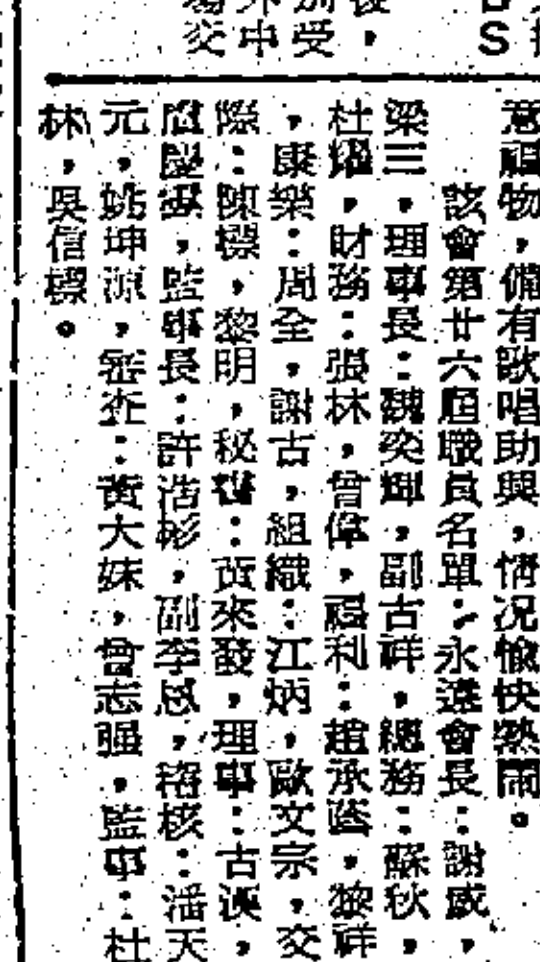 意福物，備有歌唱助興，情況愉快熱鬧。
該會第廿六屆職員名單：永遠會長：謝威，
梁三，理事長：魏奕輝，副古祥，總務：蘇秋，
杜耀，財務：張林，曾偉，福利：趙承，黎祥
，康樂：周全，謝古，組織：江炳，歐文宗，交
際：陳標，黎明，秘書：黃來發，理事：古漢，
監事長：許浩彬，副李，核：潘天
元，姚坤源，審查：黃大妹，曾志强，監事：杜
林，吳信標。